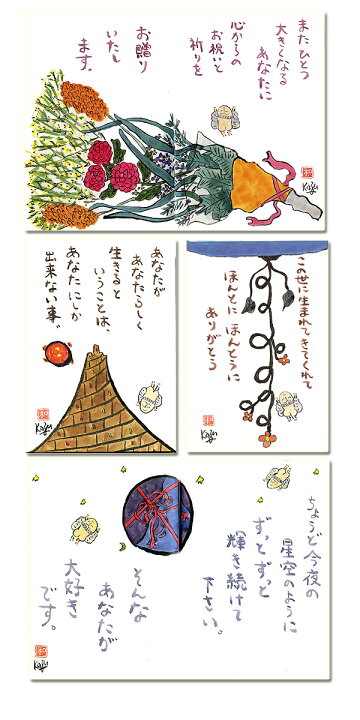 またひとつ
大きくなる
あなたに
心からの
お祝いと
祈りを
お贈り
いたし
ます。
Kazu
あなたが
あなたらしく
生きると
いうことは、
あなたにしか
出来ない事。
Kazu
この世に生まれてきてくれて
ほんとに ほんとうに
ありがとう
Kazu
ちょうど今夜の
星空のように
ずっとずっと
輝き続けて
下さい。
そんな
あなたが
大好き
です。
Kazu